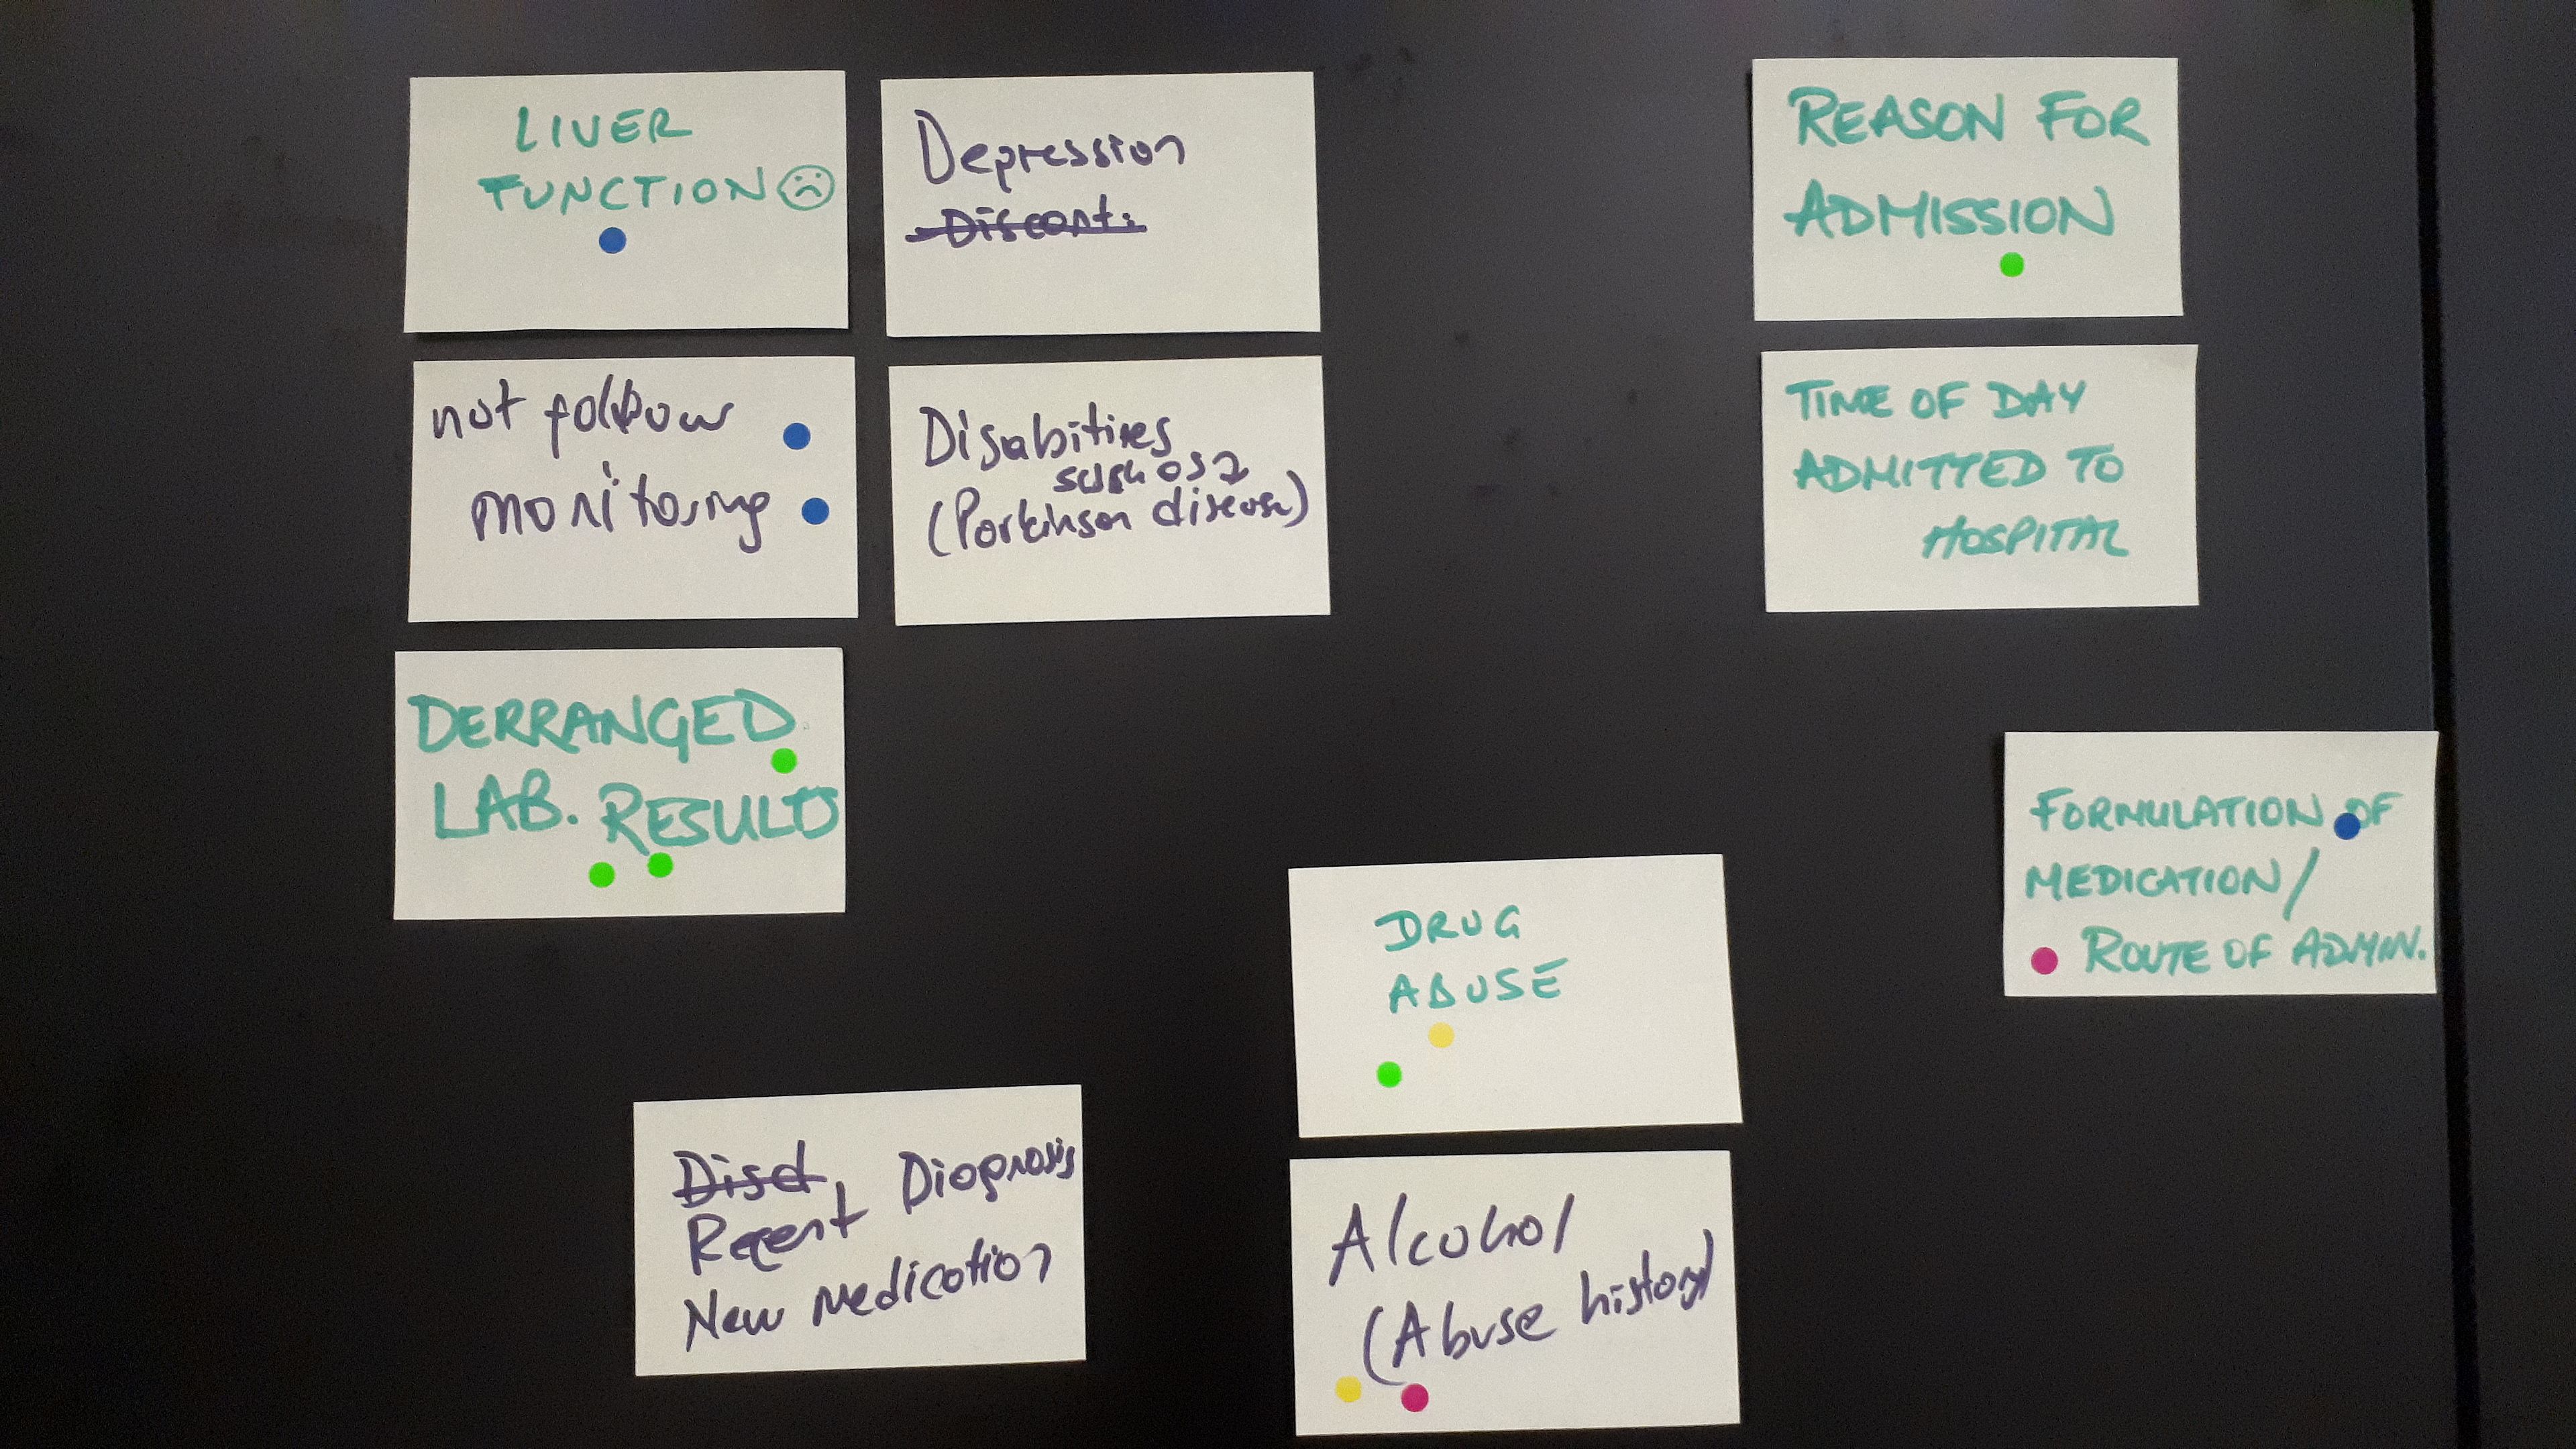 LIVER
FUNCTION
Depression
REASON FOR
ADMISSION
not follow
monitoring
Disabitires
such as
(Parkinson disease)
TIME OF DAY
ADMITTED TO
HOSPITAL
DERRANGED
LAB. RESULTS
FORMULATION OF
MEDICATION/
ROUTE OF ADMIN.
DRUG
ABUSE
Recent Diagnosis
New Medication
Alcohol
(Abuse history)